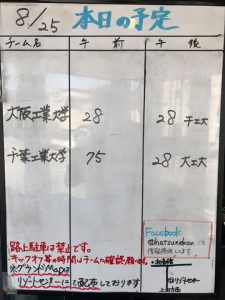 8/25 本日の予定
チーム名 午前 午後
大阪工業大学 28 28 千工大
千葉工業大学 75 28 大工大
路上駐車は禁止です。
キックオフ等の時間はチームに確認願います。
※グランドMapは
リゾートセンターにて配布しております
Facebook
@hatsunokan